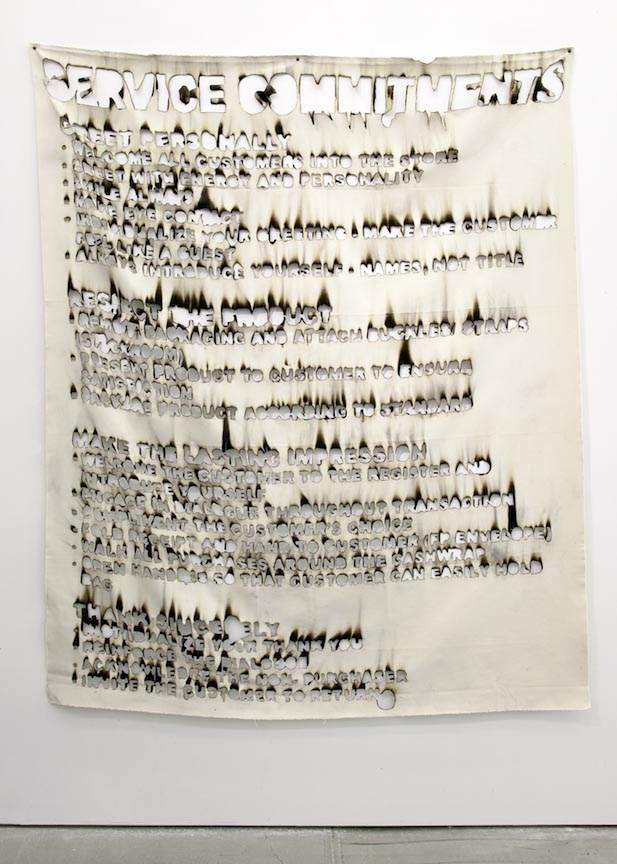 SERVICE COMMITMENTS
GREET PERSONALLY
• WELCOME ALL CUSTOMERS INTO THE STORE
• GREET WITH ENERGY AND PERSONALITY
• SMILE
• MAKE EYE CONTACT
• INDIVIDUALIZE YOUR GREETING • MAKE THE CUSTOMER
FEEL LIKE A GUEST
• ALWAYS INTRODUCE YOURSELF • NAMES, NOT TITLE
RESPECT THE PRODUCT
• REMOVE PACKAGING AND ATTACH BUCKLES/ STRAPS
(STOCKROOM)
• PRESENT PRODUCT TO CUSTOMER TO ENSURE
SATISFACTION
• PACKAGE PRODUCT ACCORDING TO STANDARD
MAKE THE LASTING IMPRESSION
• WELCOME THE CUSTOMER TO THE REGISTER AND
INTRODUCE YOURSELF
• ENGAGE IN DIALOGUE THROUGHOUT TRANSACTION
• COMPLIMENT THE CUSTOMER'S CHOICE
• FOLD RECEIPT AND HAND TO CUSTOMER (FP ENVELOPE)
• WALK ALL PURCHASES AROUND THE CASHWRAP
• OPEN HANDLES SO THAT CUSTOMER CAN EASILY HOLD
BAG
THANK SINCERELY
• INDIVIDUALIZE YOUR THANK YOU
• THE DIALOGUE
• ACKNOWLEDGE THE NON. PURCHASER
• INVITE THE CUSTOMER TO RETURN